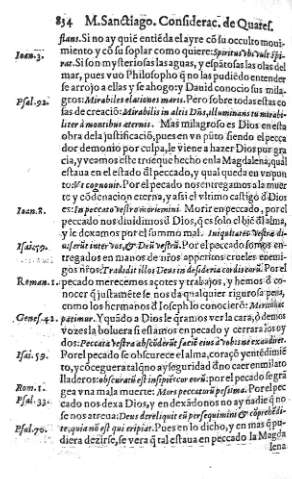 834 M. Sanctiago. Considerac. de Quares.
stans. Si no ay quié entiéda el ayre cō su occulto movi-
miento y cō su soplar como quiere: Spiritus ubi vult spi-
Ioan. 3.
rat. Si son mysteriosas las aguas, y espātosas las olas del
mar, pues vuo Philosopho q̄ no las pudiédo entender
se arrojo a ellas y se ahogo: y Dauid conocio sus mila-
Psal. 92.
gros: Mirabiles elationes maris. Pero sobre todas estas co
sas de creació: Mirabilis in altis Dñs, illuminans tu mirabi-
liter à montibus eternis. Mas milagroso es Dios en esta
obra de la justificació, pues en vn pūto siendo el pecca
dor demonio por culpa, le viene a hazer Dios por gra
cia, y veamos este trueque hecho en la Magdalena, quàl
estaua en el estado d̄l peccado, y qual queda en vn pun
to: Vt cognouit. Por el pecado nos entregamos a la muer
te y códenacion eterna, y assi el vltimo castigo d̄ Dios
Ioan. 8.
es: In peccato vestro moriemini. Morir en peccado, por el
peccado nos diuidimos d̄ Dios, q̄ es solo el hijo d̄l alma,
y le dexamos por el summo mal. Iniquitates vestra di-
Isai. 59.
uiserút inter vos, & Deū vestrū. Por el peccado somos en-
tregados en manos de ños apperitos crueles enemi-
gos ños: Tradidit illos Deus in desideria cordis eorū. Por el
Roman. 1.
pecado merecemos açotes y trabajos, y hemos d̄ co-
nocer q̄ justaméte se nos da qualquier rigurosa pena,
como los hermanos d̄ Ioseph lo conociero: Merito hac
Genes. 42.
patimur. Y quādo a Dios le q̄ramos ver la cara, ó demos
vozes la boluera si estamos en pecado y cerrara los oy
dos: Peccata vestra abscōderūt faciē eius à vobis ne exaudiret.
Isai. 59.
Por el pecado se obscurece el alma, coraçō y entédimié
to, y coceguera tal q̄ no ay seguridad d̄ no caer en mil ato
Rom. 1.
lladeros: obscuratū est insipiés cor eorū: por el pecado se grā
gea vna mala muerte: Mors peccatorū pessima. Por el pec
Psal. 33.
cado nos dexa Dios, y en dexādonos no ay nadie q̄ no
se nos atreua: Deus dereliquit eū persequimini & cōprehēdi-
Psal. 70.
te, quia nō est qui eripiat. Pues en lo dicho, y en mas q̄ pu-
diera dezirse, se vera q̄ tal estaua en peccado la Magda
lena